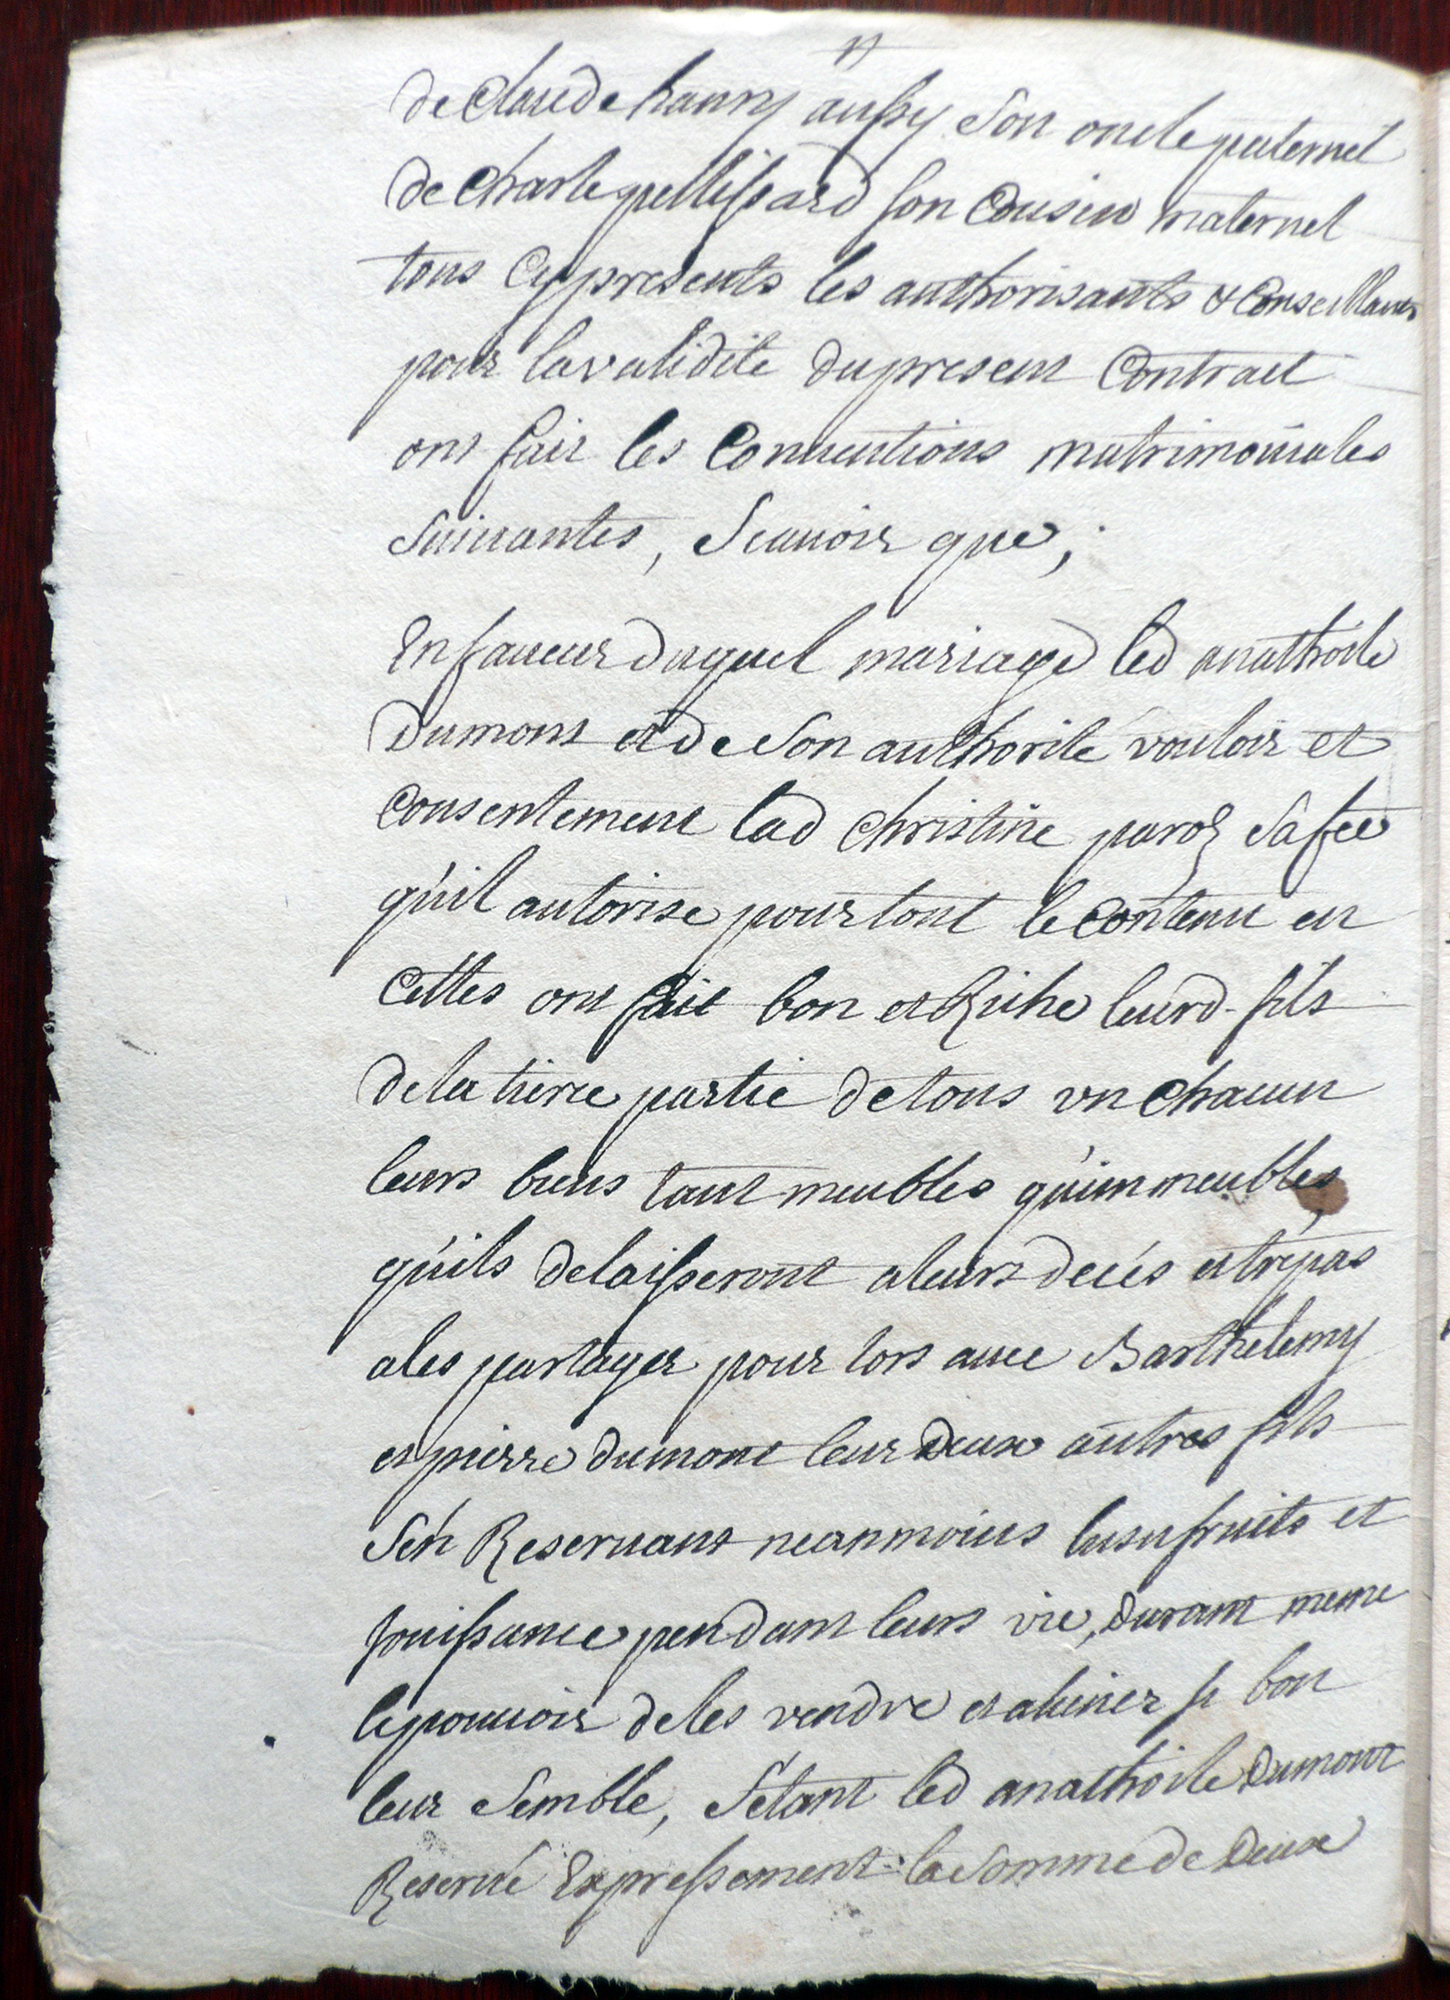 de Claude hanry aussy son oncle paternel
de Charle pellissard son Cousin maternel
tous Cy presents les authorisants & Conseillants
pour la validité du present Contract
ont fait les Conuentions matrimoniales
suiuantes, scauoir que;
En faueur duquel mariage led anathoile
Dumont et de son authorité vouloir et
Consentement lad Christine paroz sa fee
qu'il autorise pour tout le Contenu en
Cettes ont fait bon et Riche leurd. fils
de la tierce partie de tous vn chacun
leurs biens tant meubles qu'immeubles,
qu'ils delaisseront a leurs decés et trépas
a les partager pour lors auec Barthelemy
et pierre dumont leur Deux autres fils
s'en Reseruant neanmoins lusufruits et
Jouissance pendant leurs vie, Durant meme
le pouuoir de les vendre et aliener si bon
leur semble, s'étant led anathoile Dumont
Reserué Expressement la somme de Deux